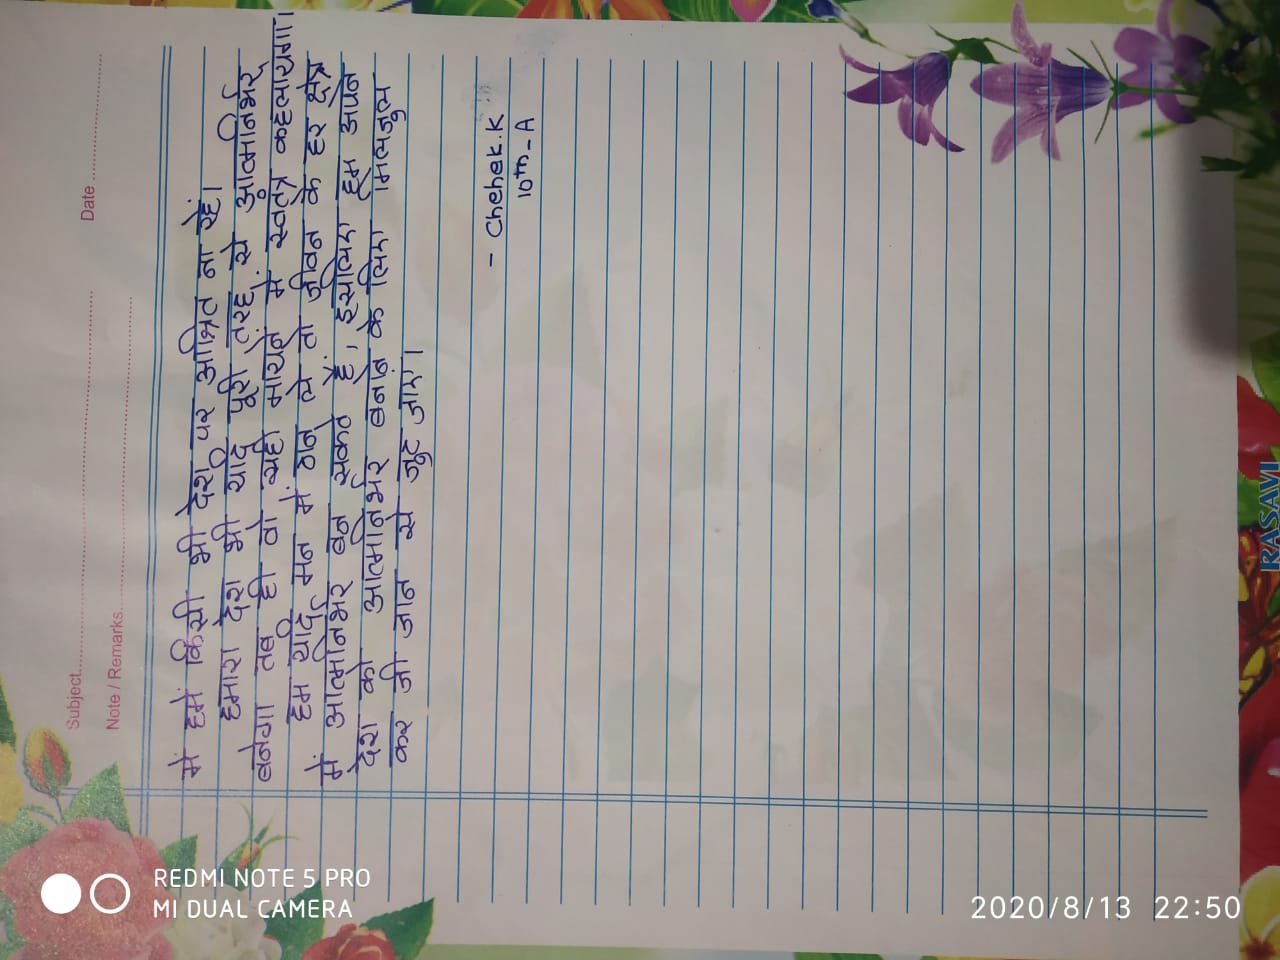 Subject........................ Date ................
Note / Remarks........................
में हमें किसी भी देश पर आश्रित ना रहें।
हमारा देश भी यदि पूरी तरह से आत्मनिर्भर
बनेगा तब ही वो सही मायने में स्वतंत्र कहलायेगा।
हम यदि मन में ठान ले तो जीवन के हर क्षेत्र
में आत्मनिर्भर बन सकते हैं, इसलिए हम अपने
देश को आत्मनिर्भर बनाने के लिए मिलजुल
कर जी जान से जुट जाए।
- Chehek.K
10th-A
RASAVI
REDMI NOTE 5 PRO
MI DUAL CAMERA
2020/8/13 22:50